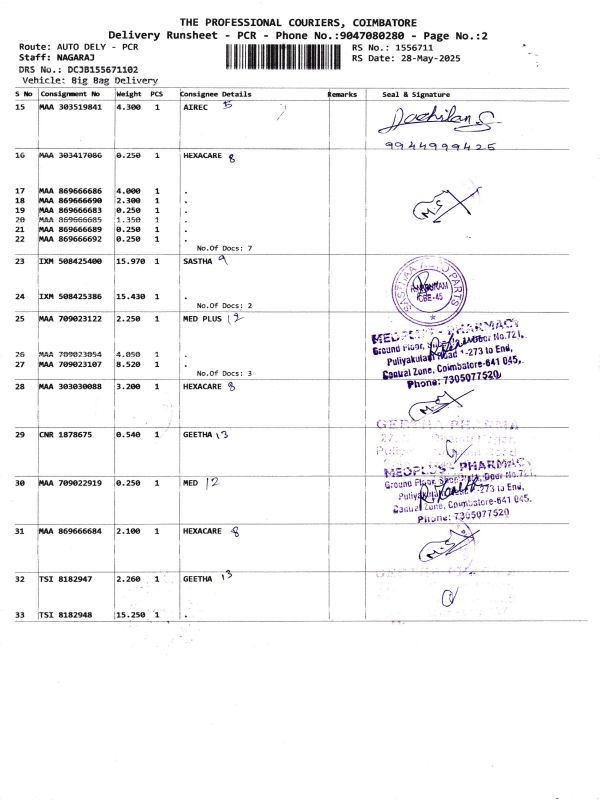 THE PROFESSIONAL COURIERS, COIMBATORE
Delivery Runsheet - PCR - Phone No.:9047080280 - Page No.:2
Route: AUTO DELY - PCR RS No.: 1556711
Staff: NAGARAJ RS Date: 28-May-2025
DRS No.: DCJB155671102
Vehicle: Big Bag Delivery
S No Consignment No Weight PCS Consignee Details Remarks Seal & Signature
15 MAA 303519841 4.300 1 AIREC 5
9944999425
16 MAA 303417086 0.250 1 HEXACARE 8
17 MAA 869666686 4.000 1 .
18 MAA 869666690 2.300 1 .
19 MAA 869666683 0.250 1 .
20 MAA 869666685 1.350 1 .
21 MAA 869666689 0.250 1 .
22 MAA 869666692 0.250 1 .
No.Of Docs: 7
23 IXM 508425400 15.970 1 SASTHA 9
24 IXM 508425386 15.430 1 .
No.Of Docs: 2
CBE-45
25 MAA 709023122 2.250 1 MED PLUS 12
MEDPLUS - PHARMACY
Ground Floor, Door No.72,
26 MAA 709023054 4.050 1 .
Puliyakulam Road 1-273 to End,
27 MAA 709023107 8.520 1 .
Zone, Coimbatore-641 045.
No.Of Docs: 3
Phone: 7305077520
28 MAA 303030088 3.200 1 HEXACARE 8
GEETHA PHARMA
29 CNR 1878675 0.540 1 GEETHA 13
MEDPLUS - PHARMACY
30 MAA 709022919 0.250 1 MED 12
Ground Floor, Door No.72,
1-273 to End,
Zone, Coimbatore-641 045.
Phone: 7305077520
31 MAA 869666684 2.100 1 HEXACARE 8
32 TSI 8182947 2.260 1 GEETHA 13
33 TSI 8182948 15.250 1 .